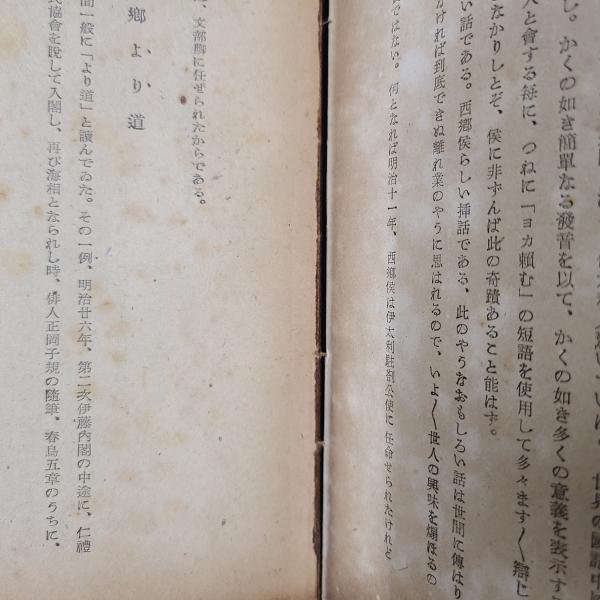 し。かくの如き簡單なる發音を以て、かくの如き多くの意義を表示す
人と會する毎に、つねに「ヨカ賴む」の短語を使用して多々ます〱辯じ
なかりしとぞ、侯に非ずんば此の奇蹟あること能はず。
い話である。西鄕侯らしい挿話である、此のやうなおもしろい話は世間に傳はり
かければ到底できぬ離れ業のやうに思はれるので、いよ〱世人の興味を煽ほるの
ではない。何となれば明治十一年、西鄕侯は伊太利駐箚公使に任命せられたけれど
、文部卿に任ぜられたからである。
鄕より道
間一般に「より道」と讀んでゐた。その一例、明治廿六年、第二次伊藤內閣の中途に、仁禮
民協會を脫して入閣し、再び海相となられし時、俳人正岡子規の隨筆、春鳥五章のうちに、